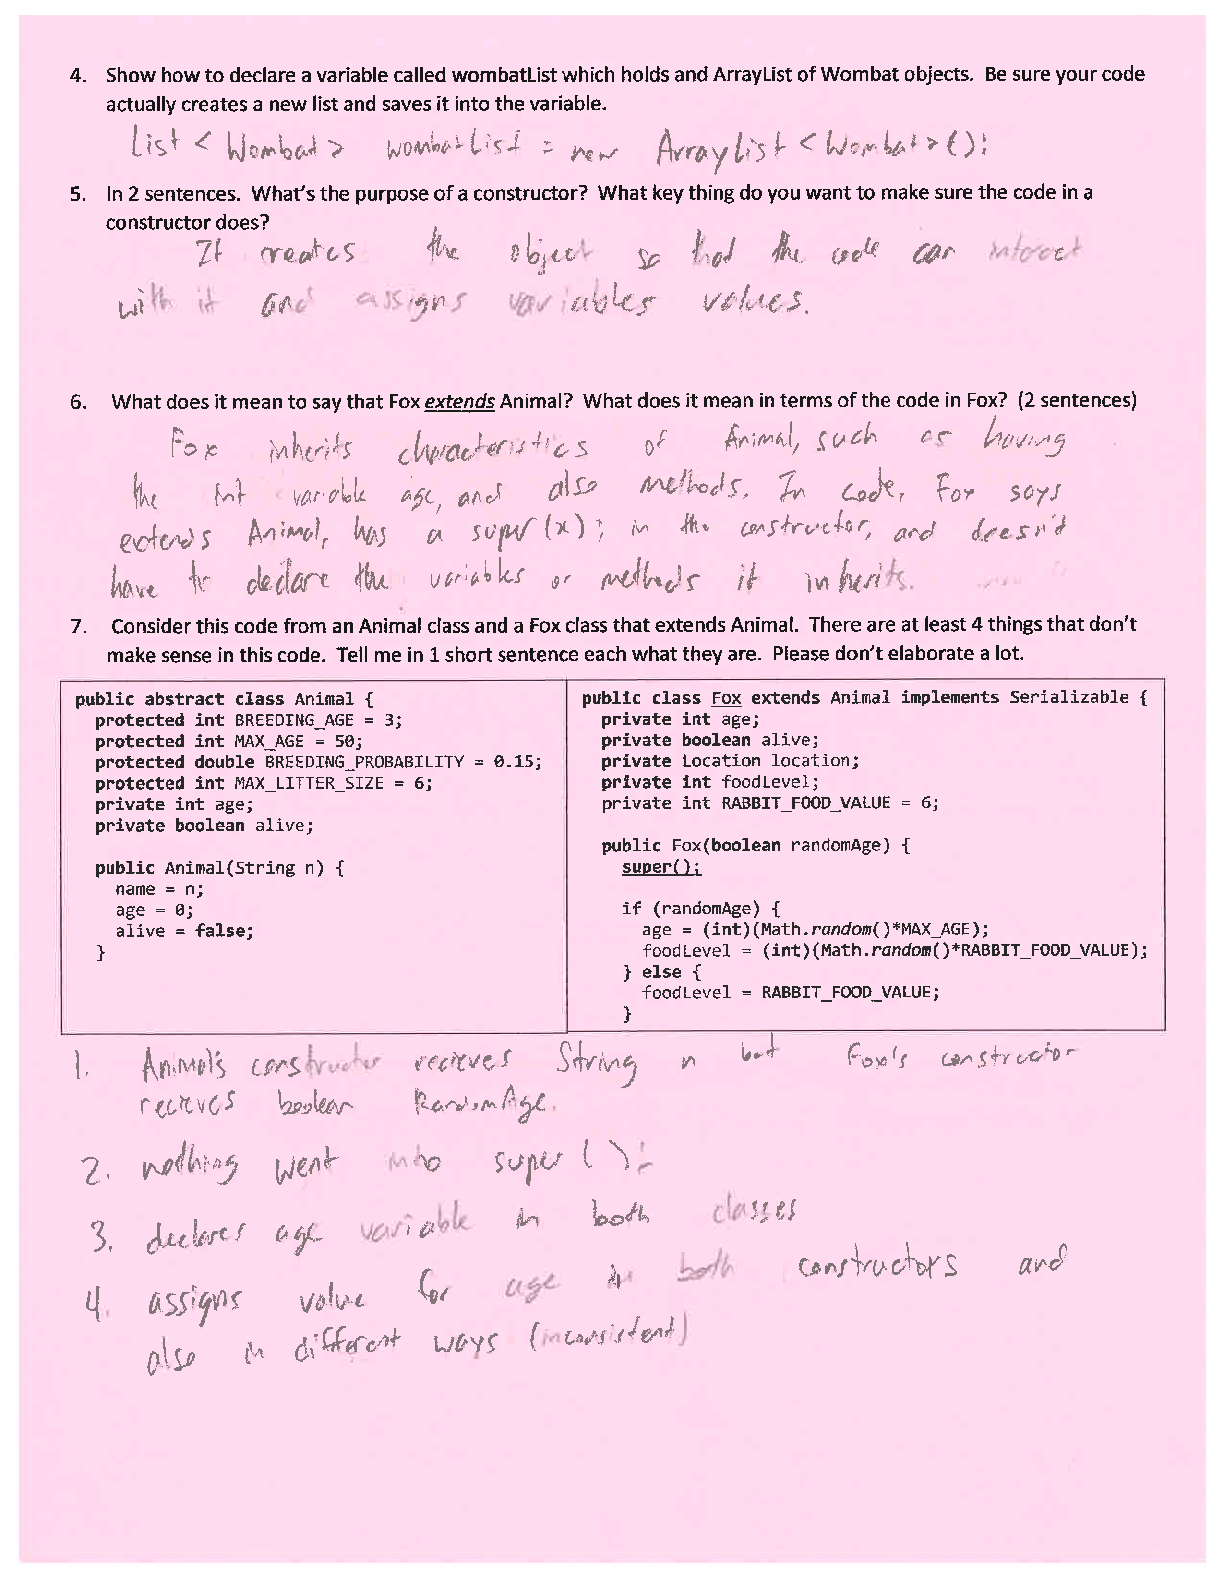 4. Show how to declare a variable called wombatList which holds and ArrayList of Wombat objects. Be sure your code
actually creates a new list and saves it into the variable.
List < Wombat > wombatList = new ArrayList < Wombat > ();
5. In 2 sentences. What's the purpose of a constructor? What key thing do you want to make sure the code in a
constructor does?
It creates the object so that the code can interact
with it and assigns variables values.
6. What does it mean to say that Fox extends Animal? What does it mean in terms of the code in Fox? (2 sentences)
Fox inherits characteristics of Animal, such as having
the int variable age, and also methods. In code, Fox says
extends Animal, has a super (x) ; in the constructor, and doesn't
have to declare the variables or methods it inherits.
7. Consider this code from an Animal class and a Fox class that extends Animal. There are at least 4 things that don't
make sense in this code. Tell me in 1 short sentence each what they are. Please don't elaborate a lot.
public abstract class Animal {
protected int BREEDING_AGE = 3;
protected int MAX_AGE = 50;
protected double BREEDING_PROBABILITY = 0.15;
protected int MAX_LITTER_SIZE = 6;
private int age;
private boolean alive;
public Animal(String n) {
name = n;
age = 0;
alive = false;
}
public class Fox extends Animal implements Serializable {
private int age;
private boolean alive;
private Location location;
private int foodLevel;
private int RABBIT_FOOD_VALUE = 6;
public Fox(boolean randomAge) {
super();
if (randomAge) {
age = (int)(Math.random()*MAX_AGE);
foodLevel = (int)(Math.random()*RABBIT_FOOD_VALUE);
} else {
foodLevel = RABBIT_FOOD_VALUE;
}
1. Animal's constructor recieves String n but Fox's constructor
recieves boolean RandomAge.
2. nothing went into super ( );
3. declares age variable in both classes
4. assigns value for age in both constructors and
also in different ways (inconsistent)